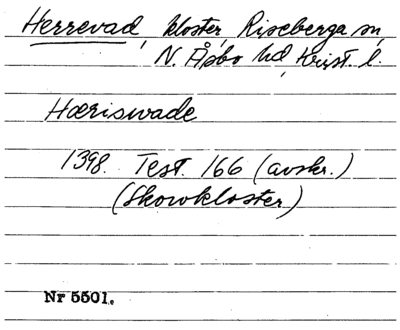 Herrevad, kloster, Riseberga sn,
N. Åsbo hd, Krist. l.
Hæriswade
1398. Test. 166 (avskr.)
(Skowkloster)
Nr 5501.